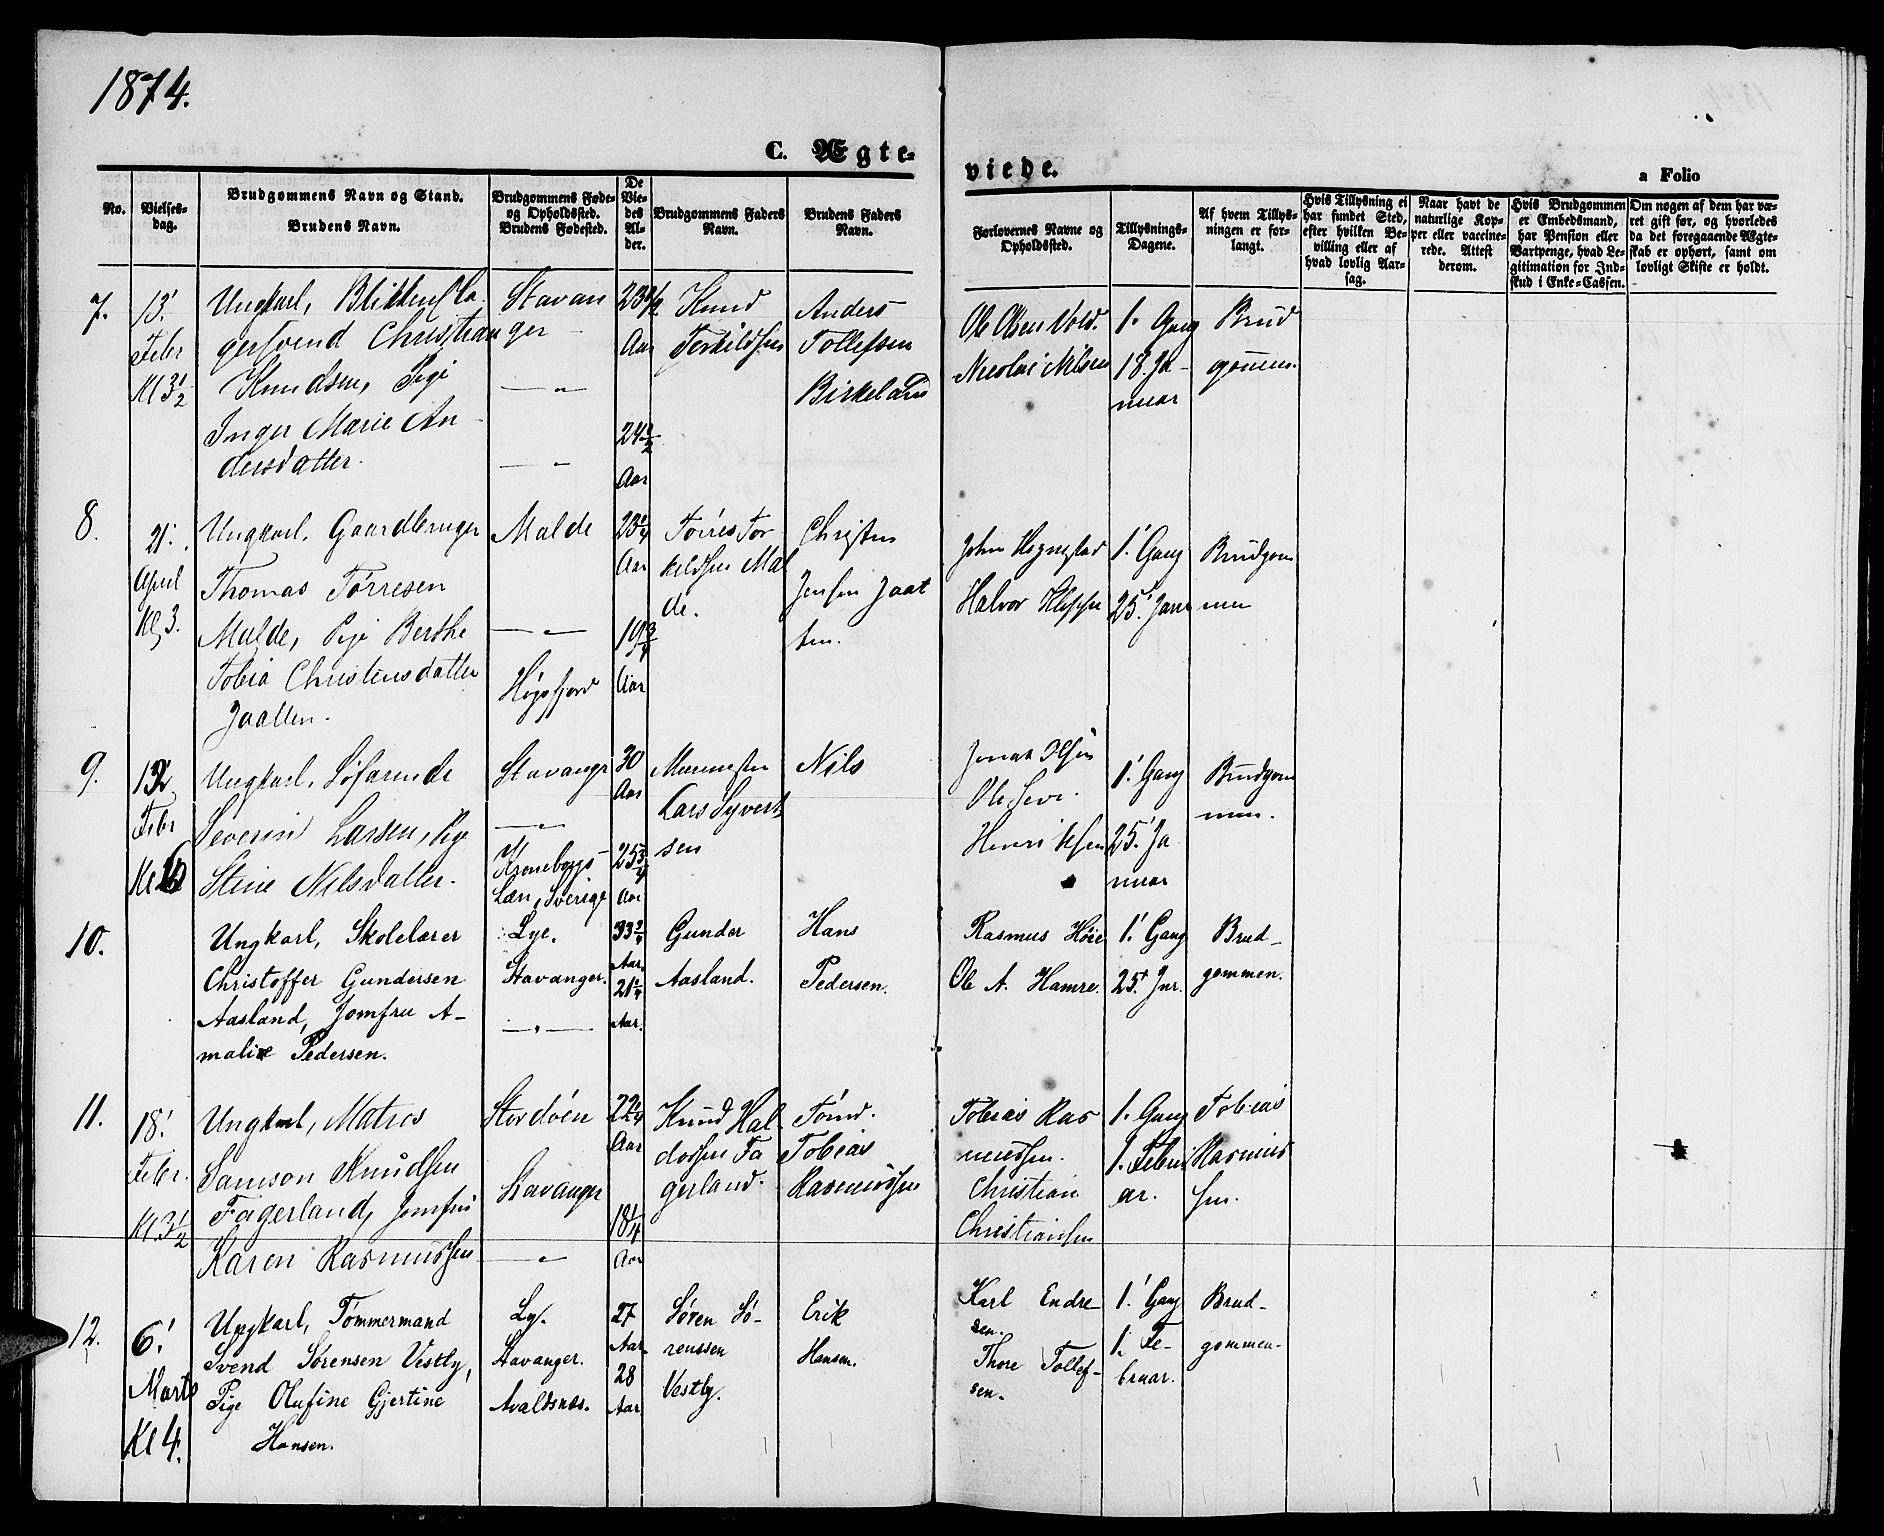 1874.
C. Ægte-
viede.
a Folio
No.
Vielses-
dag.
Brudgommens Navn og Stand.
Brudens Navn.
Brudgommens Føde-
og Opholdssted.
Brudens Fødested.
De
Vie-
des
Al-
der.
Brudgommens Faders
Navn.
Brudens Faders
Navn.
Forlovernes Navne og
Opholdssted.
Tillysnings-
Dagene.
Af hvem Tillys-
ningen er for-
langt.
Hvis Tillysning ei
har fundet Sted,
efter hvilken Be-
villing eller af
hvad lovlig Aar-
sag.
Naar havt de
naturlige Kop-
per eller vaccine-
rede. Attest
derom.
Hvis Brudgommen
er Embedsmand,
har Pension eller
Vartpenge, hvad Le-
gitimation for Ind-
skud i Enke-Cassen.
Om nogen af dem har væ-
ret gift før, og hvorledes
da det foregaaende Ægte-
skab er ophørt, samt om
lovligt Skifte er holdt.
7.
13'
Febr
Kl 3½
Ungkarl,
gersvend Christian
Knudsen, Pige
Inger Marie An-
dersdatter.
Stavan
ger
— " —
— " —
23½
Aar
24½
Aar
Knud
Torkildsen
Anders
Tollefsen
Birkeland
Ole Olsen Vold.
Nicolai Nilsen
1. Gang
18. Ja-
nuar
Brud
gommen.
8.
21'.
April
Kl 3.
Ungkarl, Gaardbruger
Thomas Tørresen
Malde, Pige Berthe
Tobia Christensdatter
Jaatten.
Malde
— " —
Høgsfjord
23¼
Aar
19¾
Aar
Tørres Tor
keldsen Mal
de.
Christen
Jensen Jaat
ten.
John Hognestad
Halvor Kleppe
1' Gang
25' Janr
Brudgom
men
9.
12
Febr
Kl 6
Ungkarl, Søfarende
Severin Larsen, Pige
Stine Nilsdatter.
Stavanger
— " —
Kronebergs-
Læn, Sverige
30
Aar
25¾
Aar
Murmester
Lars Syvert
sen
Nils
Jonas Olsen
Ole Seve.
Henriksen
1' Gang
25' Ja
nuar
Brudgom
men.
10.
Ungkarl, Skolelærer
Christoffer Gundersen
Aasland, Jomfru A-
malie Pedersen.
Lye.
Stavanger.
— " —
33¾
Aar.
21¼
Aar.
Gunder
Aasland.
Hans
Pedersen.
Rasmus Høie
Ole A. Hamre.
1' Gang
25' Jnr.
Brud-
gommen.
11.
18'
Febr.
Kl 3½
Ungkarl, Matros
Samson Knudsen
Fagerland, Jomfru
Karen Rasmussen
Stordøen
Stavanger
— " —
22¼
Aar
18¼
Aar
Knud Hal
dorsen Fa
gerland.
Tømd.
Tobias
Rasmussen
Tobias Ras
mussen.
Christian
Christiansen
1. Gang
1. Febru
ar.
Tobias
Rasmus
sen.
12.
6'
Marts
Kl 4.
Ungkarl, Tømmermand
Svend Sørensen Vestly,
Pige Olufine Gjertine
Hansen.
Ly.
Stavanger.
Avaldsnæs.
27
Aar.
28
Aar.
Søren Sö-
renssen
Vestly.
Erik
Hansen.
Karl Endre-
sen.
Thore Tollef-
sen.
1' Gang
1. Fe-
bruar.
Brud-
gommen.